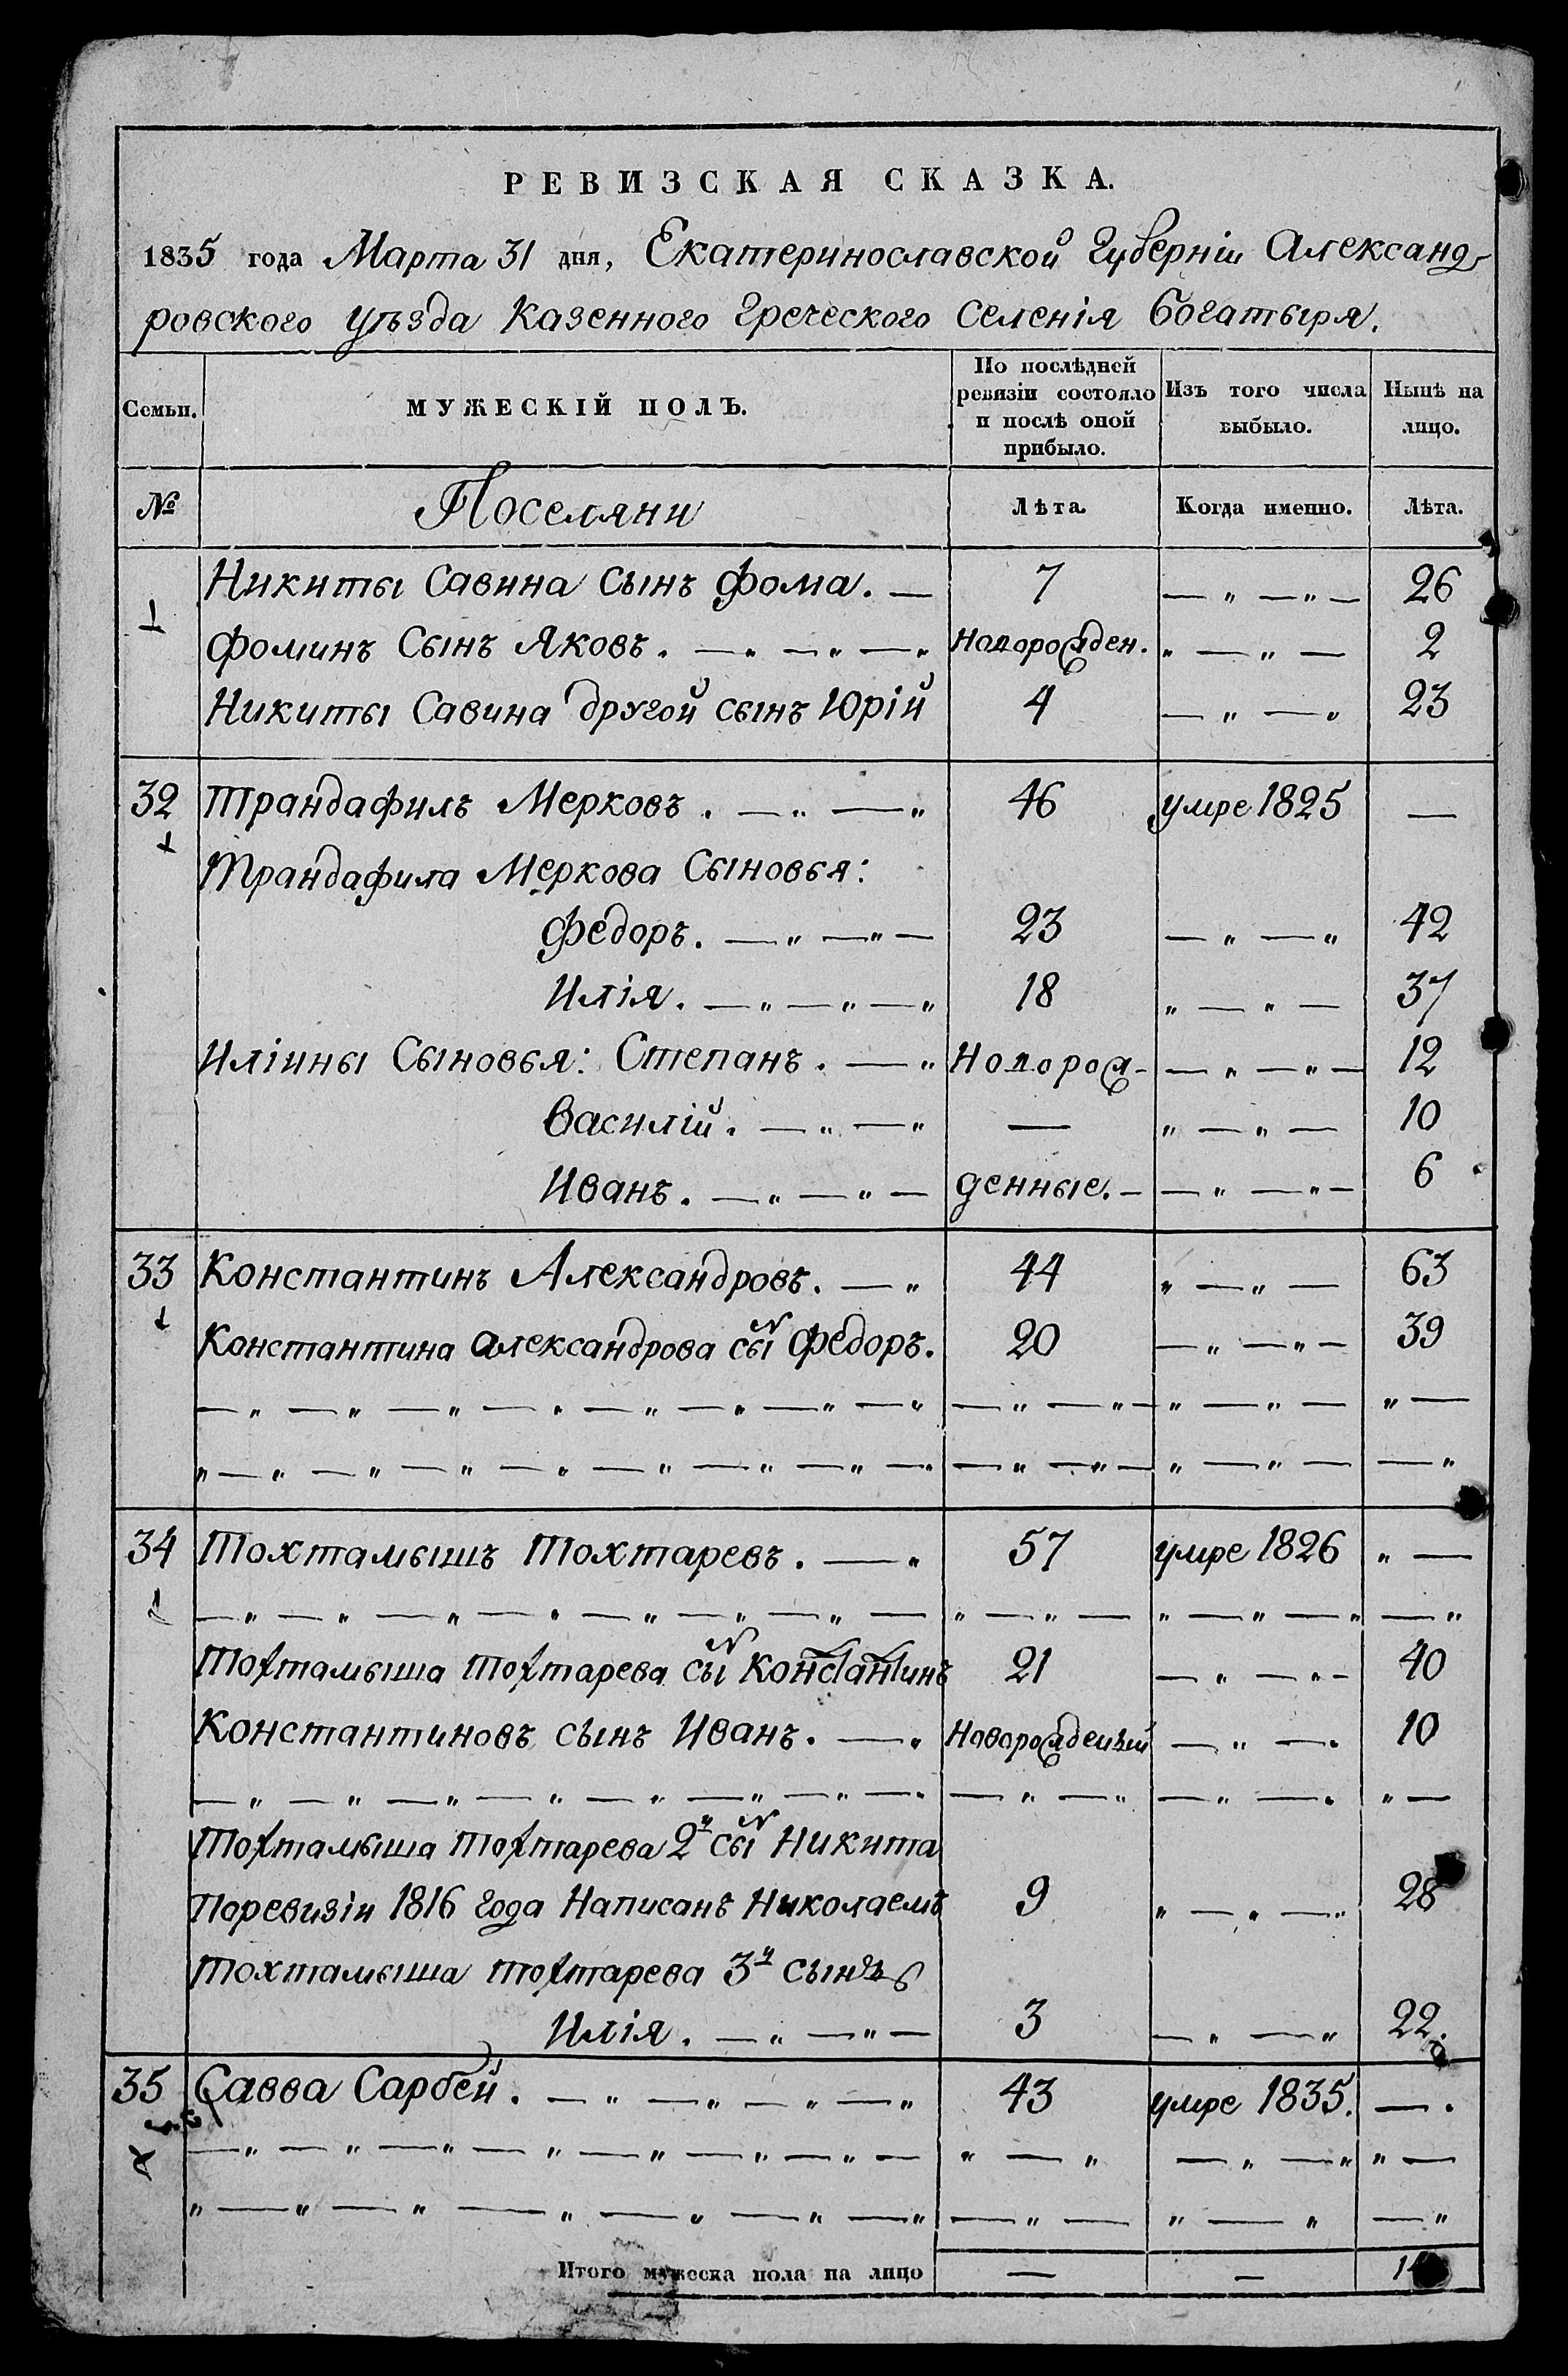 РЕВИЗСКАЯ СКАЗКА.
1835 года Марта 31 дня, Екатеринославской Губерніи Александ-
ровского уѣзда Казенного Греческого Селенія Богатыря.
Семьи. МУЖЕСКІЙ ПОЛЪ. По послѣдней ревизіи состояло и послѣ оной прибыло. Изъ того числа выбыло. Нынѣ на лицо.
№ Поселяни Лѣта. Когда именно. Лѣта.
Никиты Савина Сынъ Фома. — 7 — „ — „ — 26
Фоминъ Сынъ Яковъ. — „ — „ — „ Новорожден. „ — „ — 2
Никиты Савина другой сынъ Юрій 4 — „ — „ 23
32 Трандафилъ Мерковъ. — „ — „ 46 умре 1825 —
Трандафила Меркова Сыновья:
Федоръ. — „ — „ — 23 — „ — „ 42
Илія. — „ — „ — „ 18 „ — „ — 37
Иліины Сыновья: Степанъ. — „Новорож- — „ — „ — 12
Василій. — „ — „ — „ — „ — 10
Иванъ. — „ — „ — денные. — — „ — „ — 6
33 Константинъ Александровъ. — „ 44 „ — „ — 63
Константина Александрова сын Федоръ. 20 — „ — „ — 39
— „ — „ — „ — „ — „ — „ — „ — „ — „ — „ — „ — „ — „ —
„ — „ — „ — „ — „ — „ — „ — „ — „ — „ — „ — „ — „ — — „
34 Тохтамышъ Тохтаревъ. — „ 57 умре 1826 „ —
— „ — „ — „ — „ — „ — „ — „ — „ — „ — „ — „ — „ — „
Тохтамыша Тохтарева сын Константинъ 21 — „ — „ — 40
Константиновъ сынъ Иванъ. — „ Новорожденный — „ — „ 10
— „ — „ — „ — „ — „ — „ — „ — „ — „ — „ — „ — „ „ —
Тохтамыша Тохтарева 2й сын Никита
Поревизіи 1816 года Написанъ Николаемъ 9 „ — „ — „ 28
Тохтамыша Тохтарева 3й сынъ
Илія. — „ — „ — 3 — „ — „ 22.
35 Савва Сарбей. — „ — „ — „ — „ 43 умре 1835. — „
— „ — „ — „ — „ — „ — „ — „ — „ — „ — „ — „ „ —
„ — „ — „ — „ — „ — „ — „ — „ — „ — „ — „
Итого мужеска пола на лицо — —